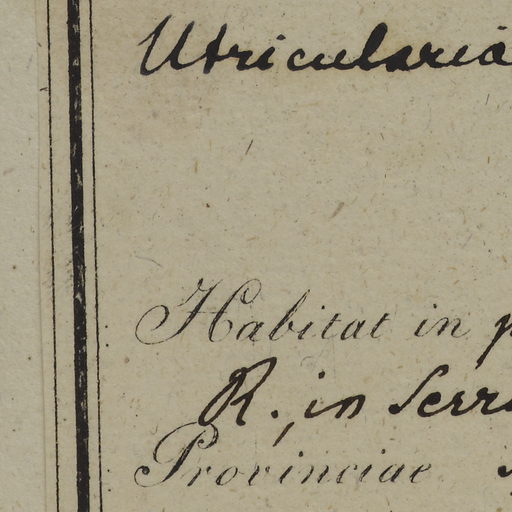 Utricularia
Habitat in
R., in Serr
Provinciae